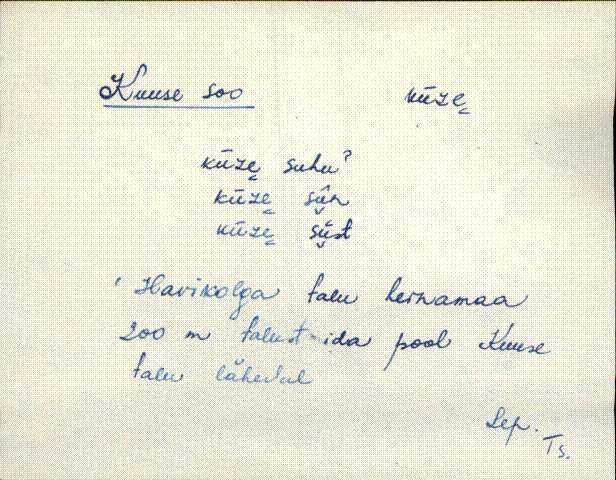 Kuuse soo kūze̬
kūze̬ suhu?
kūze̬ sūn
kūze̬ sūst
Havikolga talu heinamaa
200 m talust ida pool Kuuse
talu lähedal
Lep.
Ts.